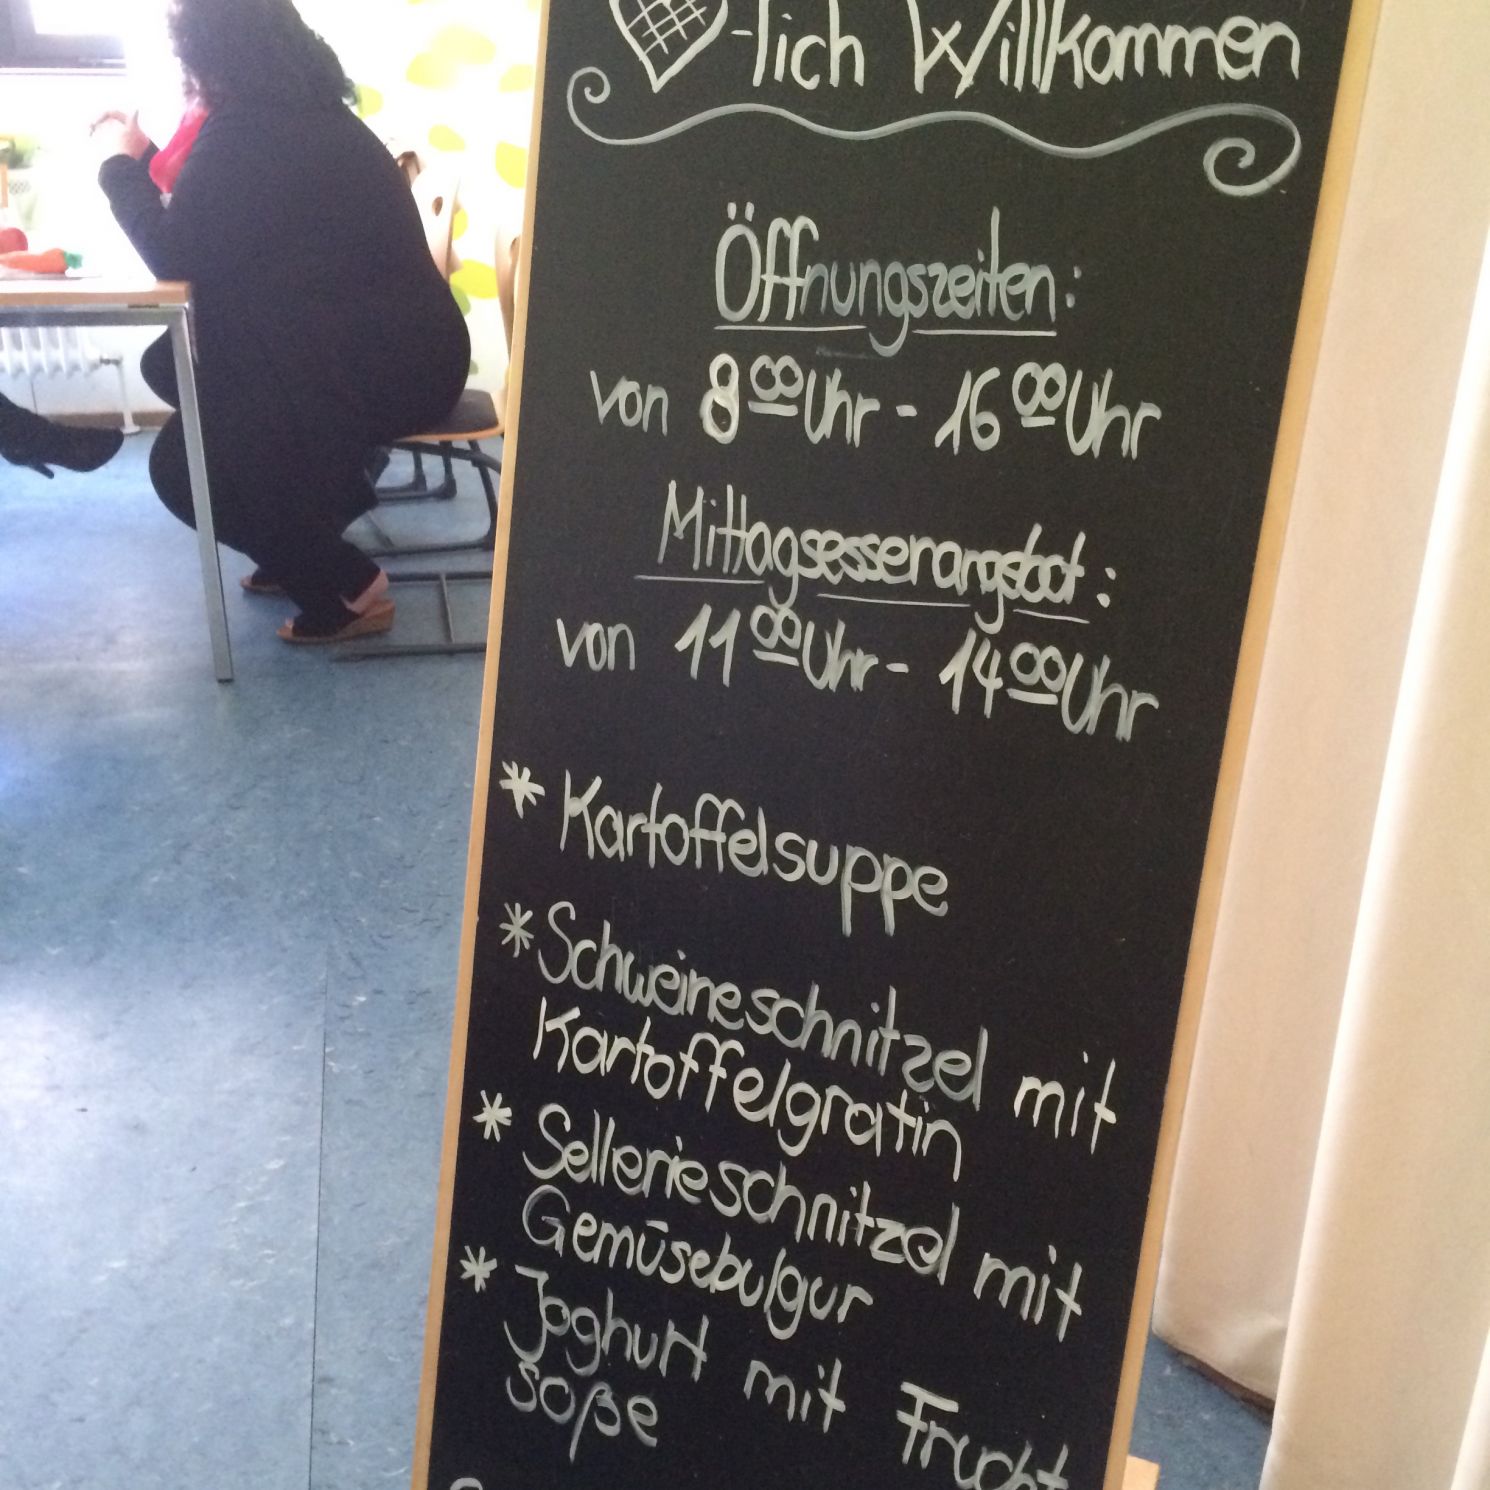 -lich Willkommen
Öffnungszeiten:
von 8 00 Uhr - 16 00 Uhr
Mittagsessenangebot:
von 11 00 Uhr - 14 00 Uhr
* Kartoffelsuppe
* Schweineschnitzel mit
Kartoffelgratin
* Sellerieschnitzel mit
Gemüsebulgur
* Joghurt mit Frucht
soße